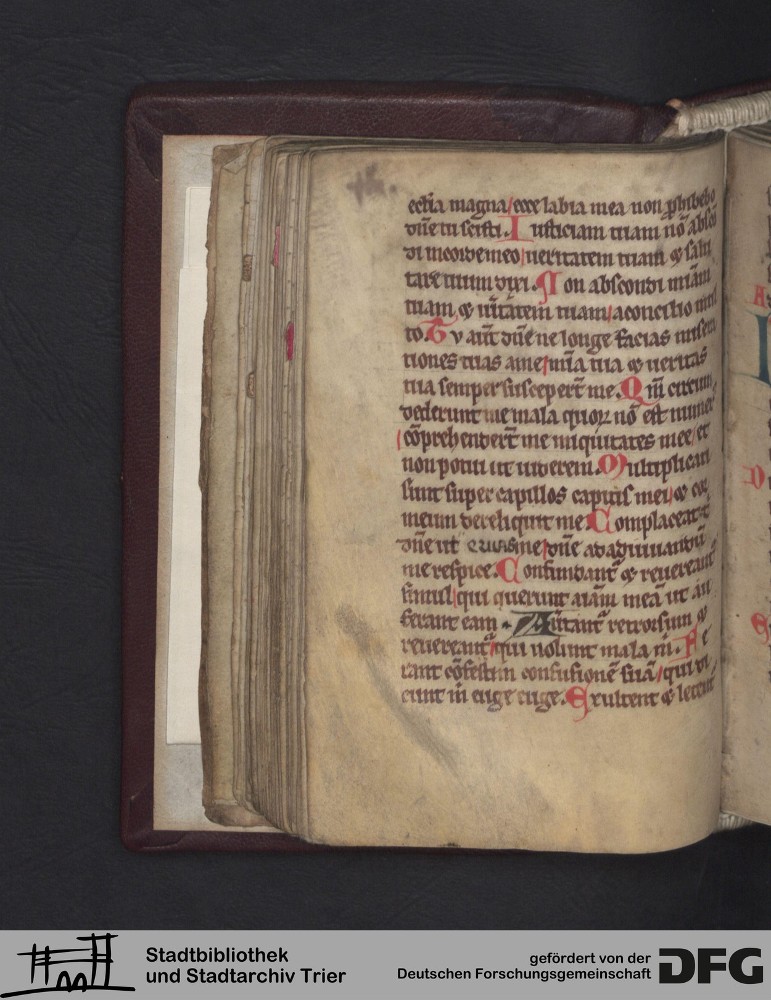 ecclia magna/ecce labia mea non ꝓhibebo
dn̄e tu scisti. Iusticiam tuam nō abscō
di in corde meo/ueritatem tuam ⁊ salu
tare tuum dixi. Non abscondi mīam
tuam ⁊ ūitātem tuam/a concilio mul
to. Tv aūt dn̄e ne longe facias misera
tiones tuas a me/mīa tua ⁊ ueritas
tua semper suscepert̄ me. Qm̄ circum
dederunt me mala quoꝝ nō est numer͛
/cōprehendert̄ me iniquitates mee/et
non potui ut uiderem. Multiplicati
sunt super capillos capitis mei/⁊ cor
meum dereliquit me. Complaceat t
dn̄e ut eruas me/dn̄e ad adiuuandū
me respice. Confundant᷑ ⁊ reuereant᷑
simul/qui querunt aīam meā ut au
ferant eam. Auertant᷑ retrorsum ⁊
reuereant᷑/qui uolunt mala m̄. Fe
rant cōfestim confusionē suā/qui di
cunt m̄ euge euge. Exultent ⁊ letent᷑
Stadtbibliothek
und Stadtarchiv Trier
gefördert von der
Deutschen Forschungsgemeinschaft
DFG